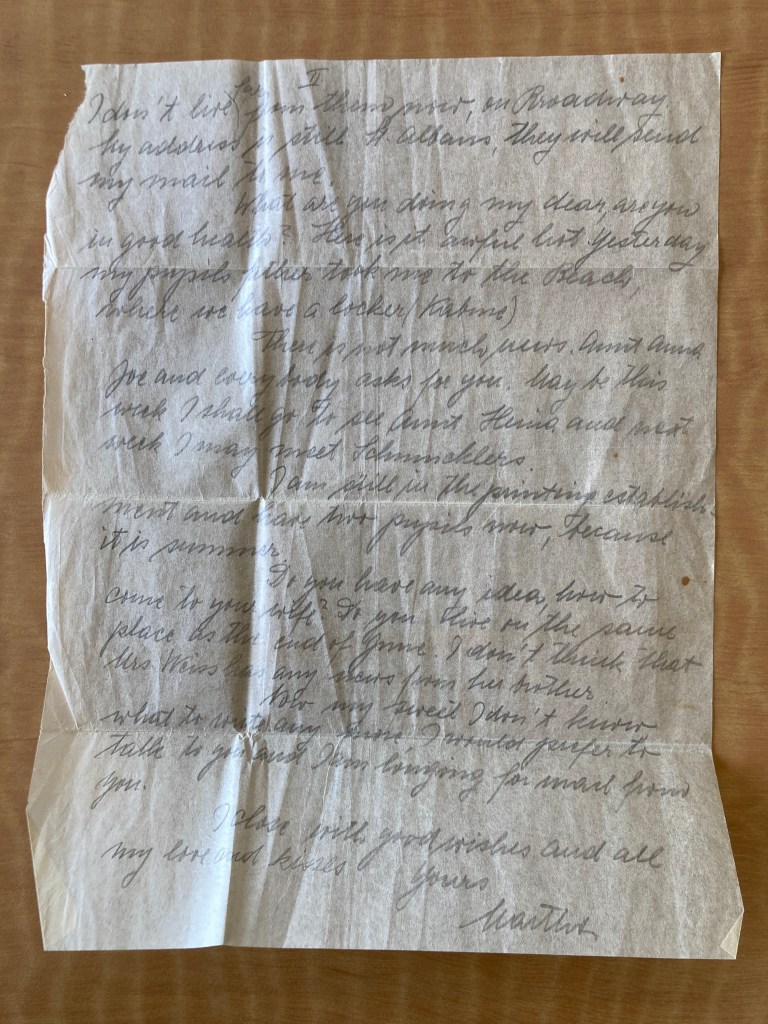 II
I don't live far from them now, on Broadway
My address is still St. Albans, they will send
my mail to me.
What are you doing my dear, are you
in good health? Here is it awful hot. Yesterday
my pupils father took me to the Beach,
where we have a locker (Kabine)
There is not much news. Aunt Anna
Joe and everybody asks for you. May be this
week I shall go to see Aunt and next
week I may meet Schmucklers
I am still in the printing establish-
ment and have two pupils now, because
it is summer.
Do you have any idea, how to
come to your wife? Do you live on the same
place as the end of June. I don't think that
Mrs Weiss has any news from her brother
Now my sweet I don't know
what to write any more I would prefer to
talk to you and I am longing for mail from
you.
I close with good wishes and all
my love and kisses
Yours
Martha